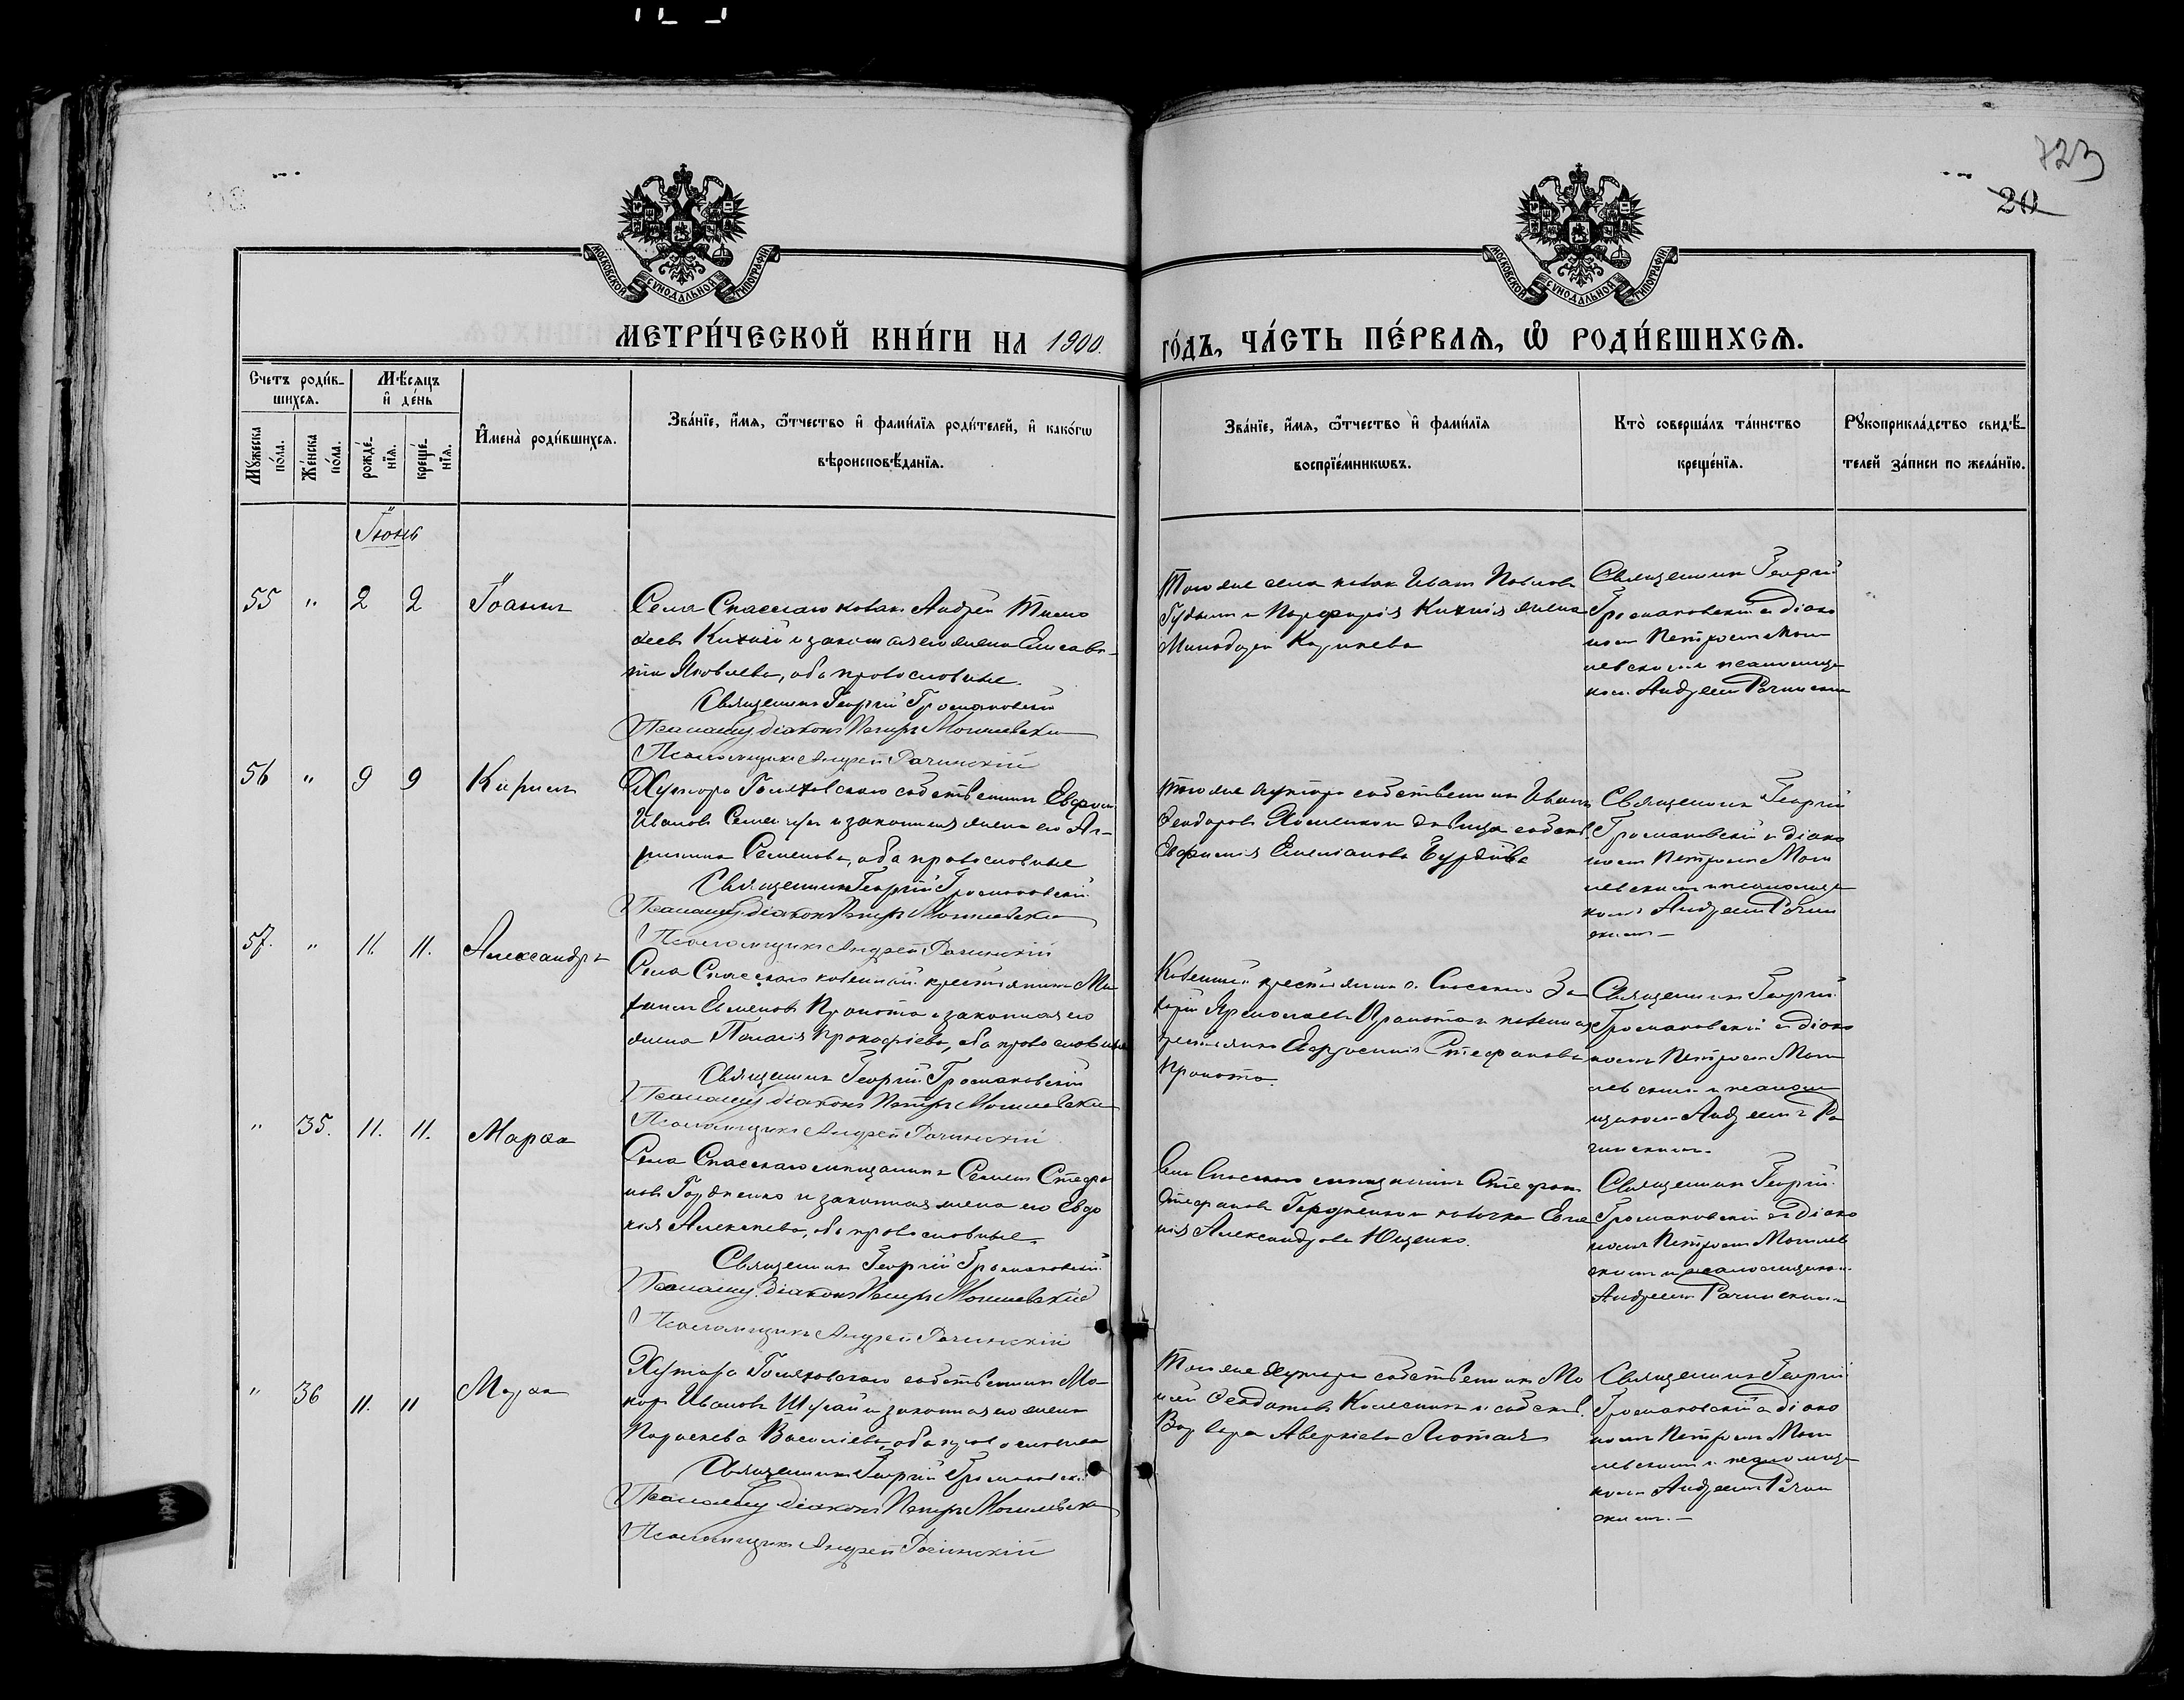 723
20
МОСКОВСКОЙ СѴНОДАЛЬНОЙ ТИПОГРАФІИ
МОСКОВСКОЙ СѴНОДАЛЬНОЙ ТИПОГРАФІИ
МЕТРИ́ЧЕСКОЙ КНИ́ГИ НА 1900. ГО́ДЪ, ЧА́СТЬ ПЕ́РВАѦ, Ѽ РОДИ́ВШИХСѦ.
Счетъ роди́в-
шихся.
Мѣсяцъ
и҆ де́нь
Мꙋжеска по́ла.
Же́нска по́ла.
рожде́-нїя.
креще́-нїя.
И҆мена̀ роди́вшихся.
Зва́нїе, и҆́мя, ѻ҆́тчество и҆ фами́лїя роди́телей, и҆ како́гѡ
вѣроисповѣ́данїя.
Зва́нїе, и҆́мя, ѻ҆́тчество и҆ фами́лїя
воспрїе́мникѡвъ.
Кто̀ соверша́лъ та́инство
креще́нїя.
Рꙋкоприкла́дство свидѣ́-
телей за́писи по жела́нїю.
Іюнь
55 " 2 2 Іоаннъ
Села Спасскаго козакъ Андрей Тимо
ѳеевъ Кихтій и законная его жена Елисаве-
та Яковлева, оба православные.
Священникъ Георгій Громаковскій
Псаломщ. діаконъ Петръ Могилевскій
Псаломщикъ Андрей Рачинскій
Того же села козакъ Иванъ Павловъ
Кихтія жена
Священникъ Георгій
Громаковскій съ діако
номъ Петромъ Моги
левскимъ и псаломщи
комъ Андреемъ Рачинскимъ
56 " 9 9 Кириллъ
Хутора Голяховскаго собственникъ
Ивановъ и законная жена его Аг-
рипина Семенова, оба православные
Священникъ Георгій Громаковскій
Псаломщ. діаконъ Петръ Могилевскій
Псаломщикъ Андрей Рачинскій
Того же хутора собственникъ Иванъ
Феодоровъ и дѣвица собств.
Евфимія Емеліанова
Священникъ Георгій
Громаковскій съ діако
номъ Петромъ Моги
левскимъ и псаломщи
комъ Андреемъ Рачин
скимъ –
57. " 11. 11. Александръ
Села Спасскаго казенный крестьянинъ
Евменовъ и законная его
жена Пелагія Прокофіева, оба православные
Священникъ Георгій Громаковскій
Псаломщ. діаконъ Петръ Могилевскій
Псаломщикъ Андрей Рачинскій
Казенный крестьянинъ с. Спасскаго За
харій и казенная
крестьянка Евфросинія Стефанова
Священникъ Георгій
Громаковскій съ діако
номъ Петромъ Моги
левскимъ и псалом
щикомъ Андреемъ Ра
чинскимъ.
" 35. 11. 11. Марѳа
Села Спасскаго мѣщанинъ Семенъ Стефа
новъ Гордіенко и законная жена его Евдо
кія Алексѣева, оба православные.
Священникъ Георгій Громаковскій
Псаломщ. діаконъ Петръ Могилевскій
Псаломщикъ Андрей Рачинскій
Села Спасскаго мѣщанинъ Стефанъ
Стефановъ Гордіенко и козачка Евге
нія Александрова Ющенко.
Священникъ Георгій
Громаковскій съ діако
номъ Петромъ Могилев
скимъ и псаломщикомъ
Андреемъ Рачинскимъ
" 36 11. 11 Марѳа
Хутора Голяховскаго собственникъ Ма-
каръ Ивановъ и законная его жена
Параскева Василіева, оба православные
Священникъ Георгій Громаковскій
Псаломщ. діаконъ Петръ Могилевскій
Псаломщикъ Андрей Рачинскій
Того же хутора собственникъ Мо
исей Колесникъ и собств.
Варвара Аверкіева Лютая
Священникъ Георгій
Громаковскій съ діако
номъ Петромъ Моги
левскимъ и псаломщи
комъ Андреемъ Рачин
скимъ. –